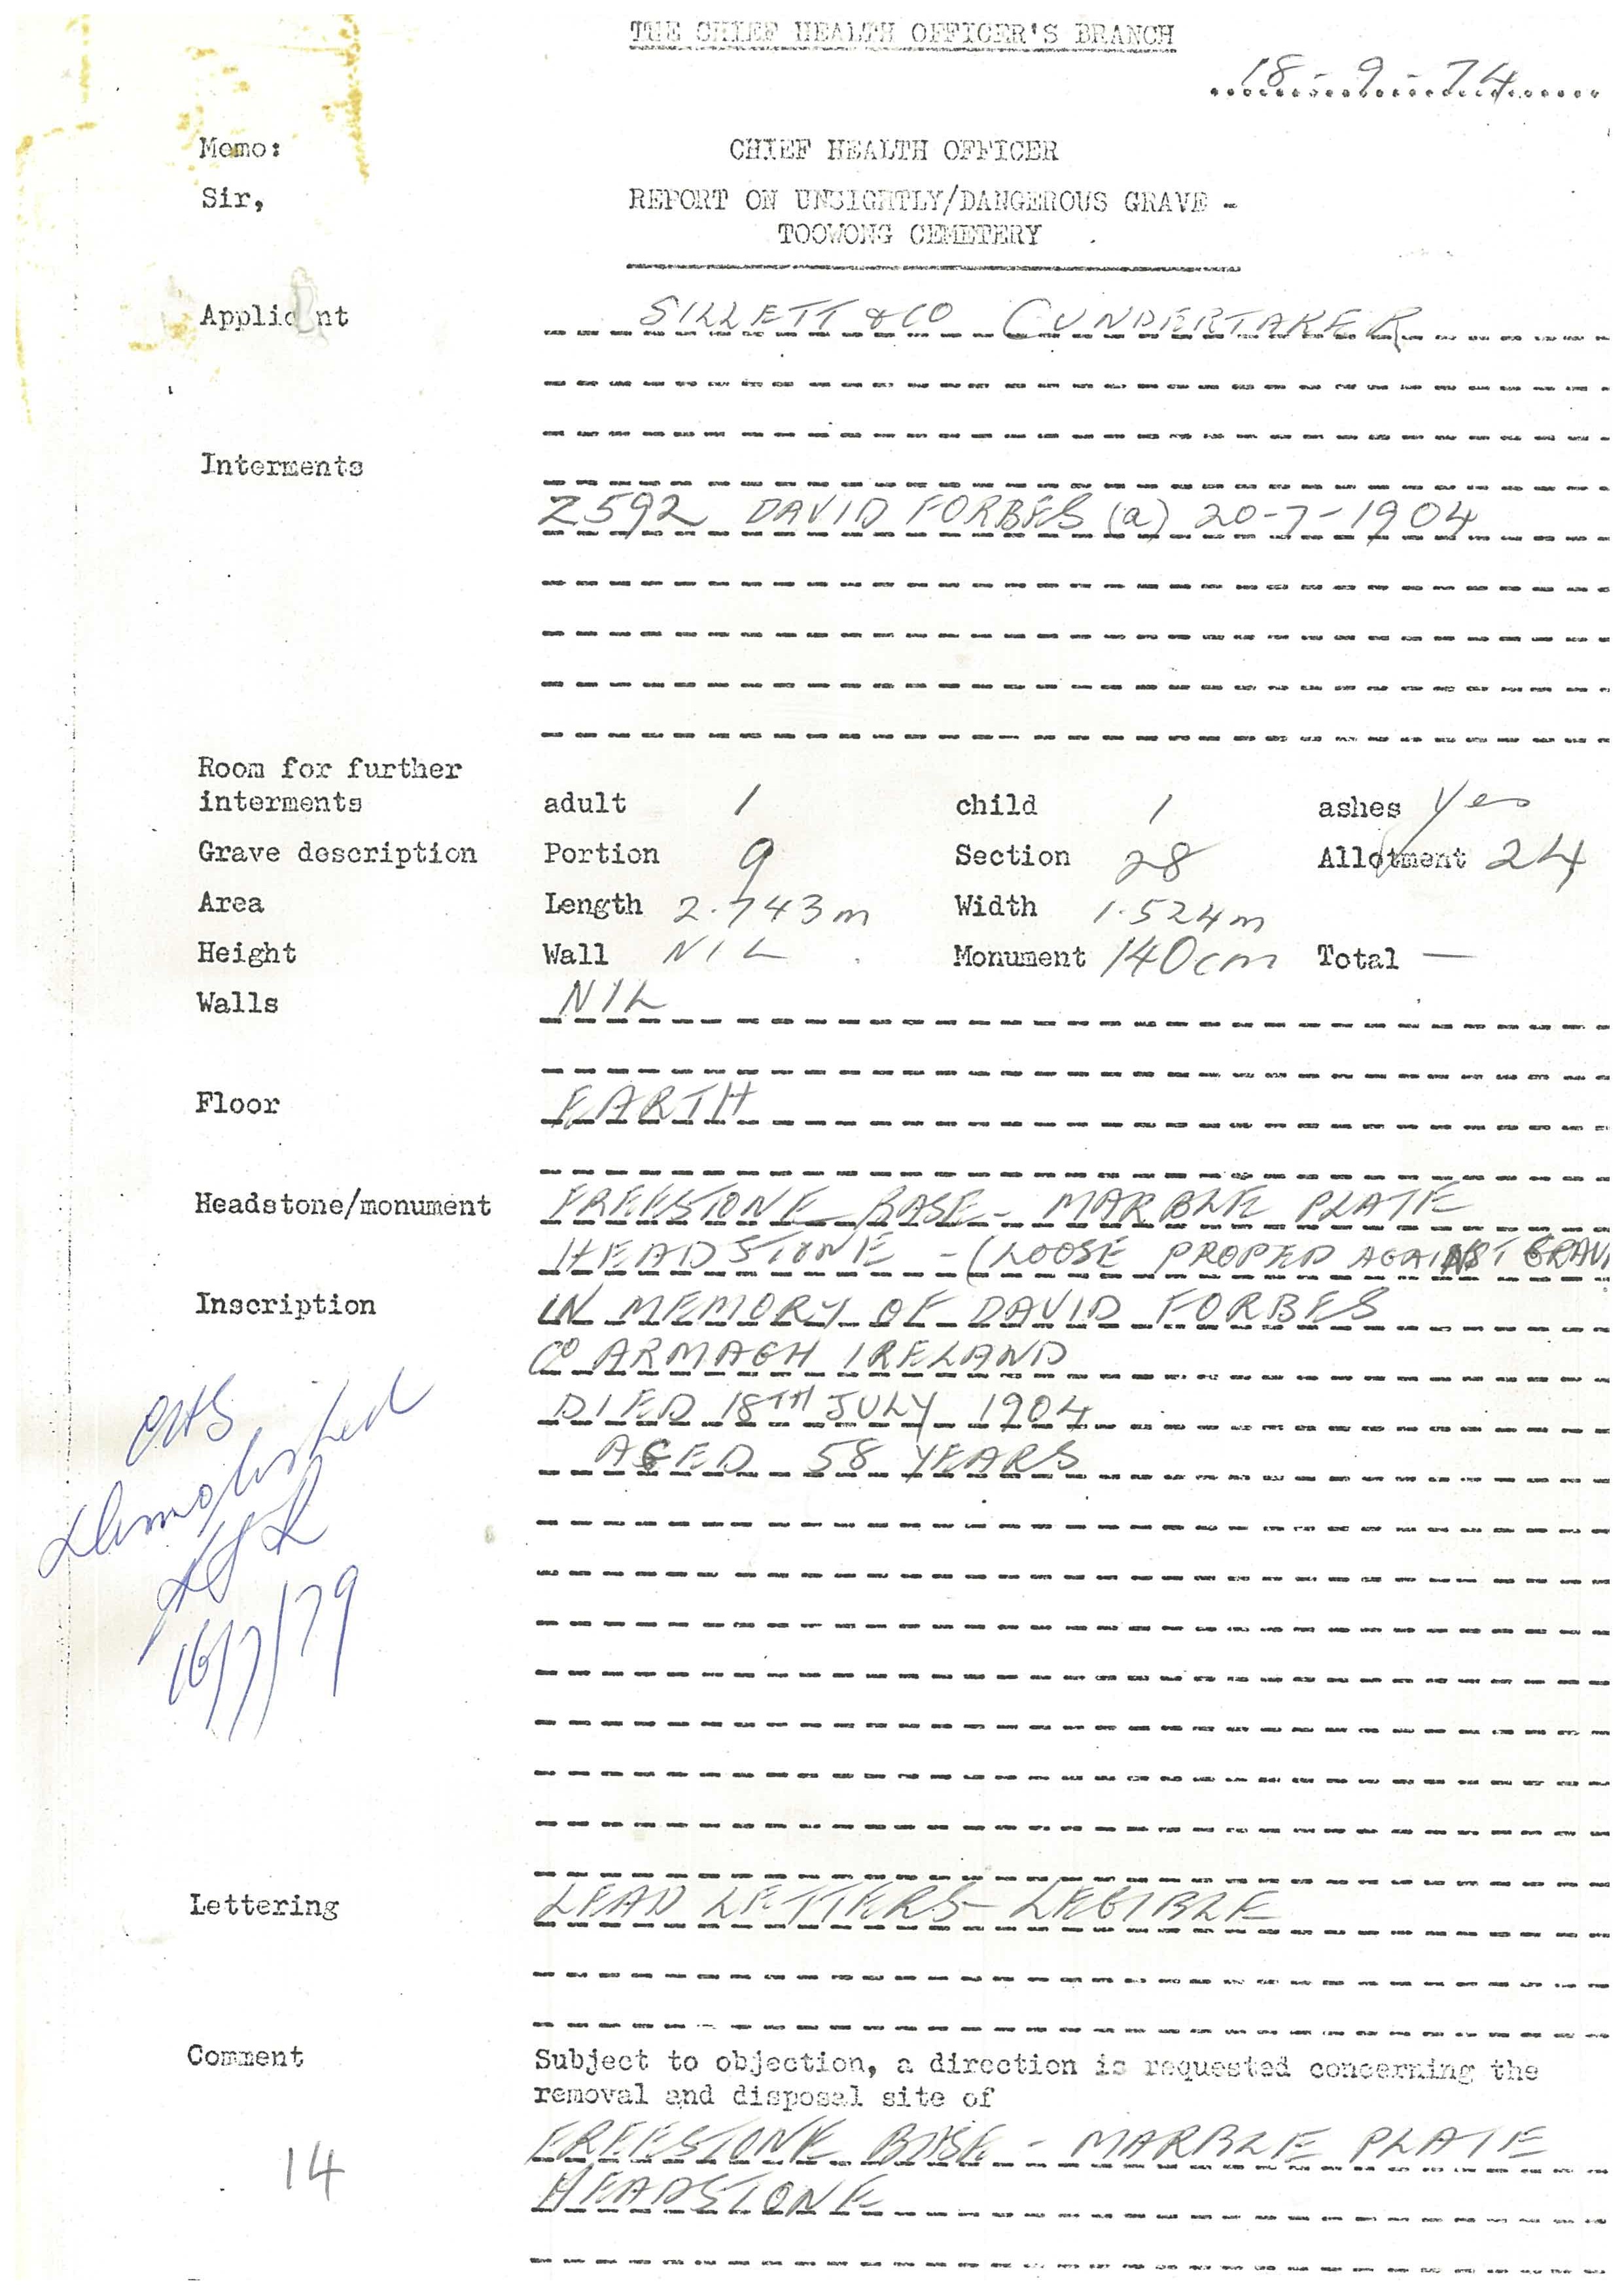 THE CHIEF HEALTH OFFICER'S BRANCH
18-9-74
Memo: CHIEF HEALTH OFFICER
Sir, REPORT ON UNSIGHTLY/DANGEROUS GRAVE -
TOOWONG CEMETERY
Applicant SILLETT & CO (UNDERTAKER
Interments
Z592 DAVID FORBES (a) 20-7-1904
Room for further
interments adult 1 child 1 ashes Yes
Grave description Portion 9 Section 28 Allotment 24
Area Length 2.743m Width 1.524m
Height Wall NIL Monument 140cm Total —
Walls NIL
Floor EARTH
Headstone/monument FREESTONE BASE - MARBLE PLATE
HEADSTONE - (LOOSE PROPED AGAINST GRAV
Inscription IN MEMORY OF DAVID FORBES
CO ARMAGH IRELAND
DIED 18TH JULY 1904
AGED 58 YEARS
Demolished
16/7/79
Lettering LEAD LETTERS - LEGIBLE
Comment Subject to objection, a direction is requested concerning the
removal and disposal site of
FREESTONE BASE - MARBLE PLATE
14
HEADSTONE